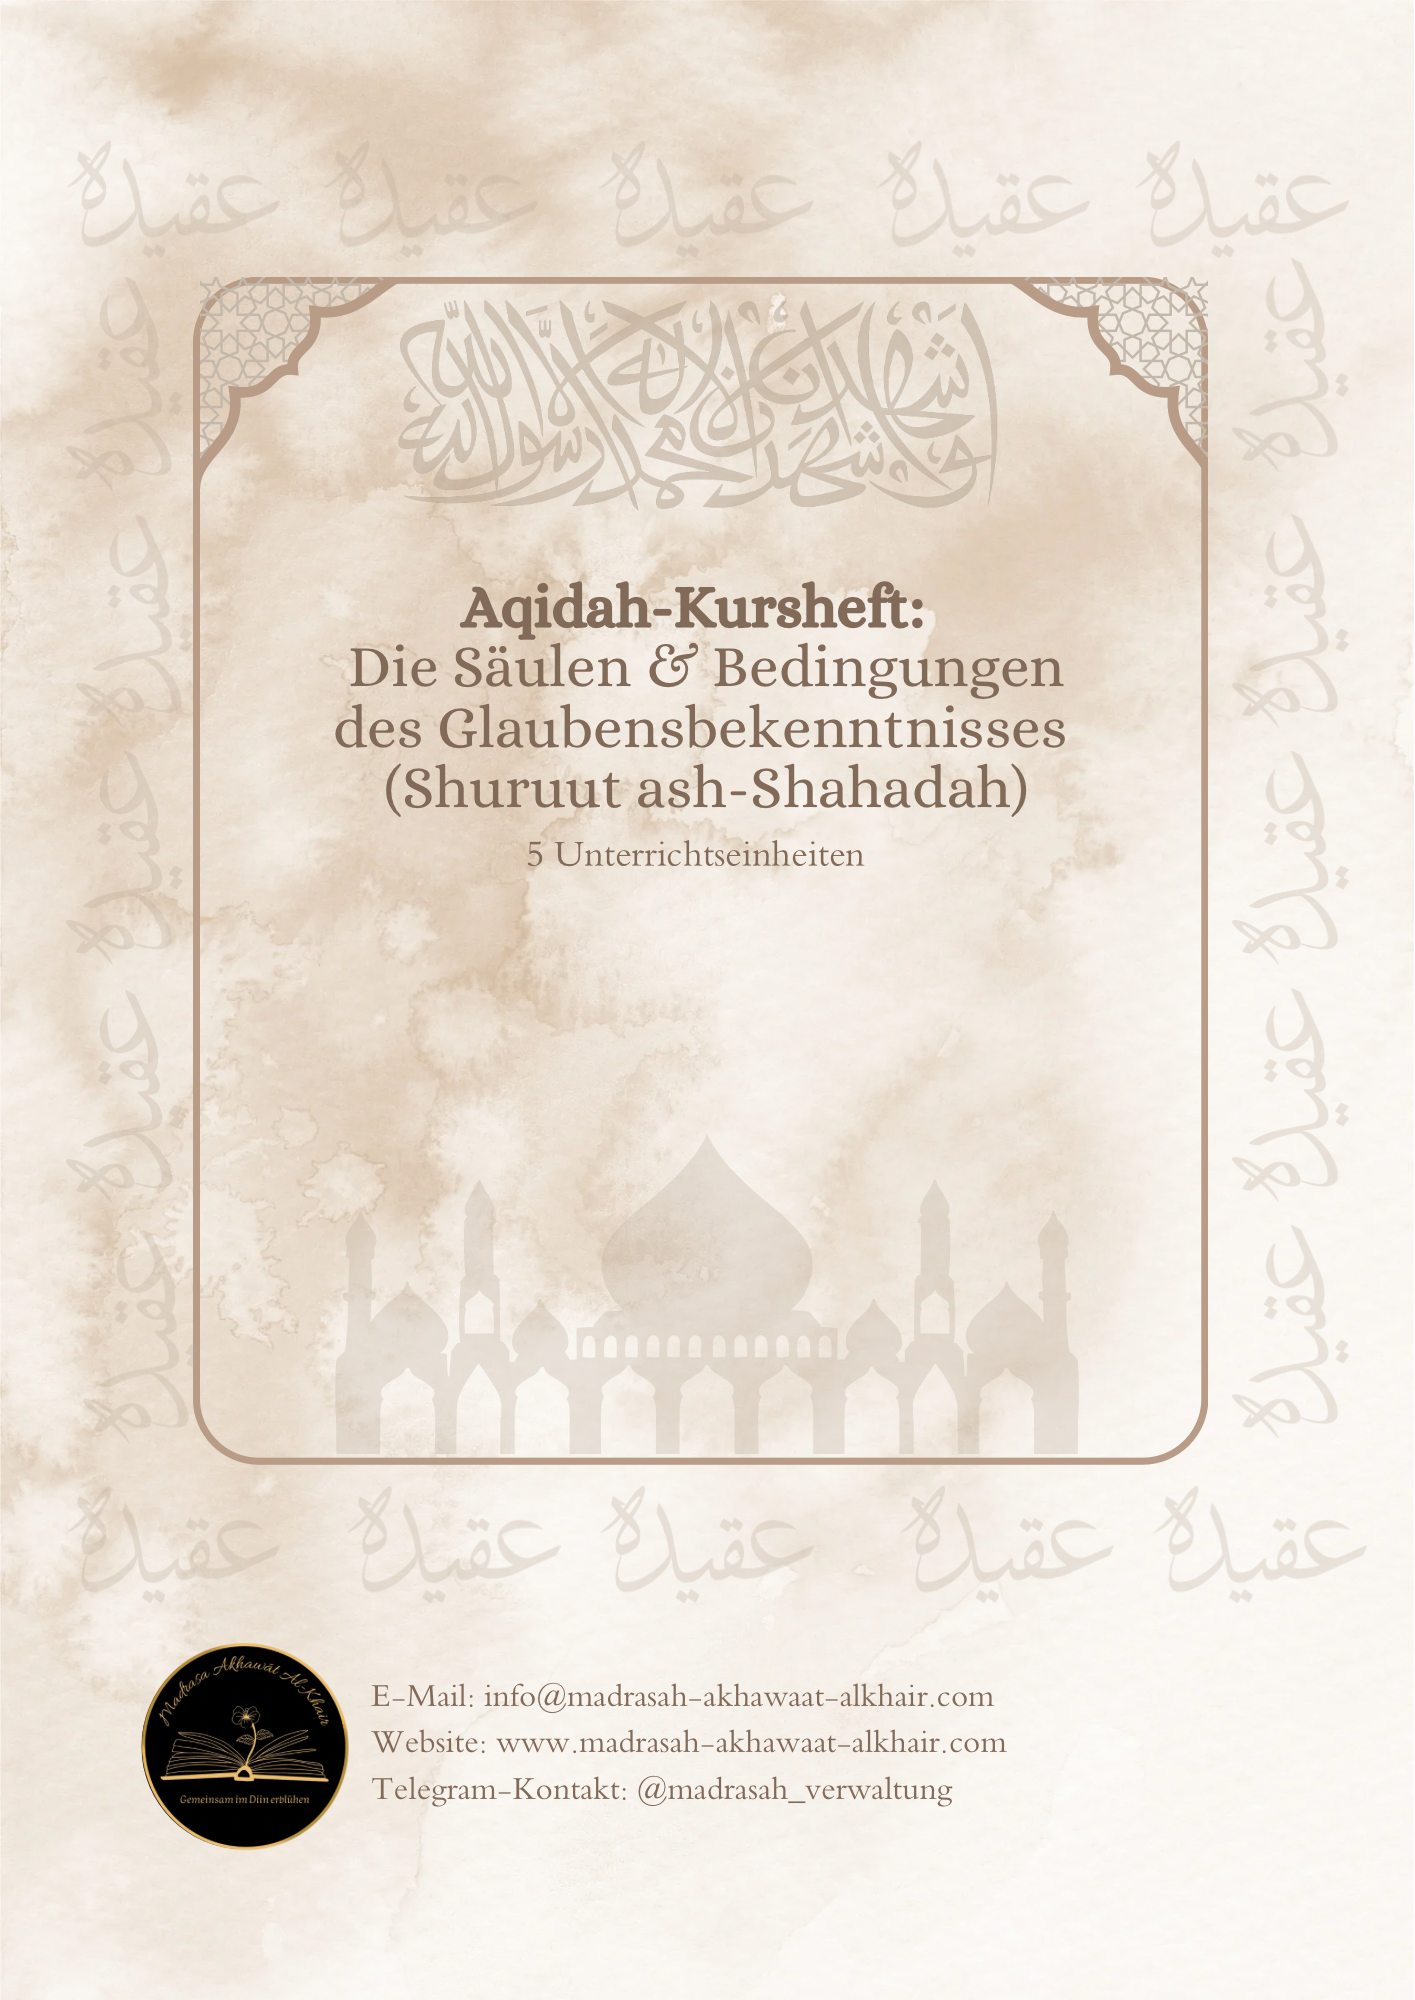 عقيدة عقيدة عقيدة عقيدة عقيدة
أشهد أن لا إله إلا الله
وأشهد أن محمدا رسول الله
Aqidah-Kursheft:
Die Säulen & Bedingungen
des Glaubensbekenntnisses
(Shuruut ash-Shahadah)
5 Unterrichtseinheiten
عقيدة
عقيدة
عقيدة
عقيدة
عقيدة
عقيدة
عقيدة
عقيدة
عقيدة
عقيدة
عقيدة عقيدة عقيدة عقيدة عقيدة
Madrasa Akhawāt Al-Khair
Gemeinsam im Diin erblühen
E-Mail: info@madrasah-akhawaat-alkhair.com
Website: www.madrasah-akhawaat-alkhair.com
Telegram-Kontakt: @madrasah_verwaltung